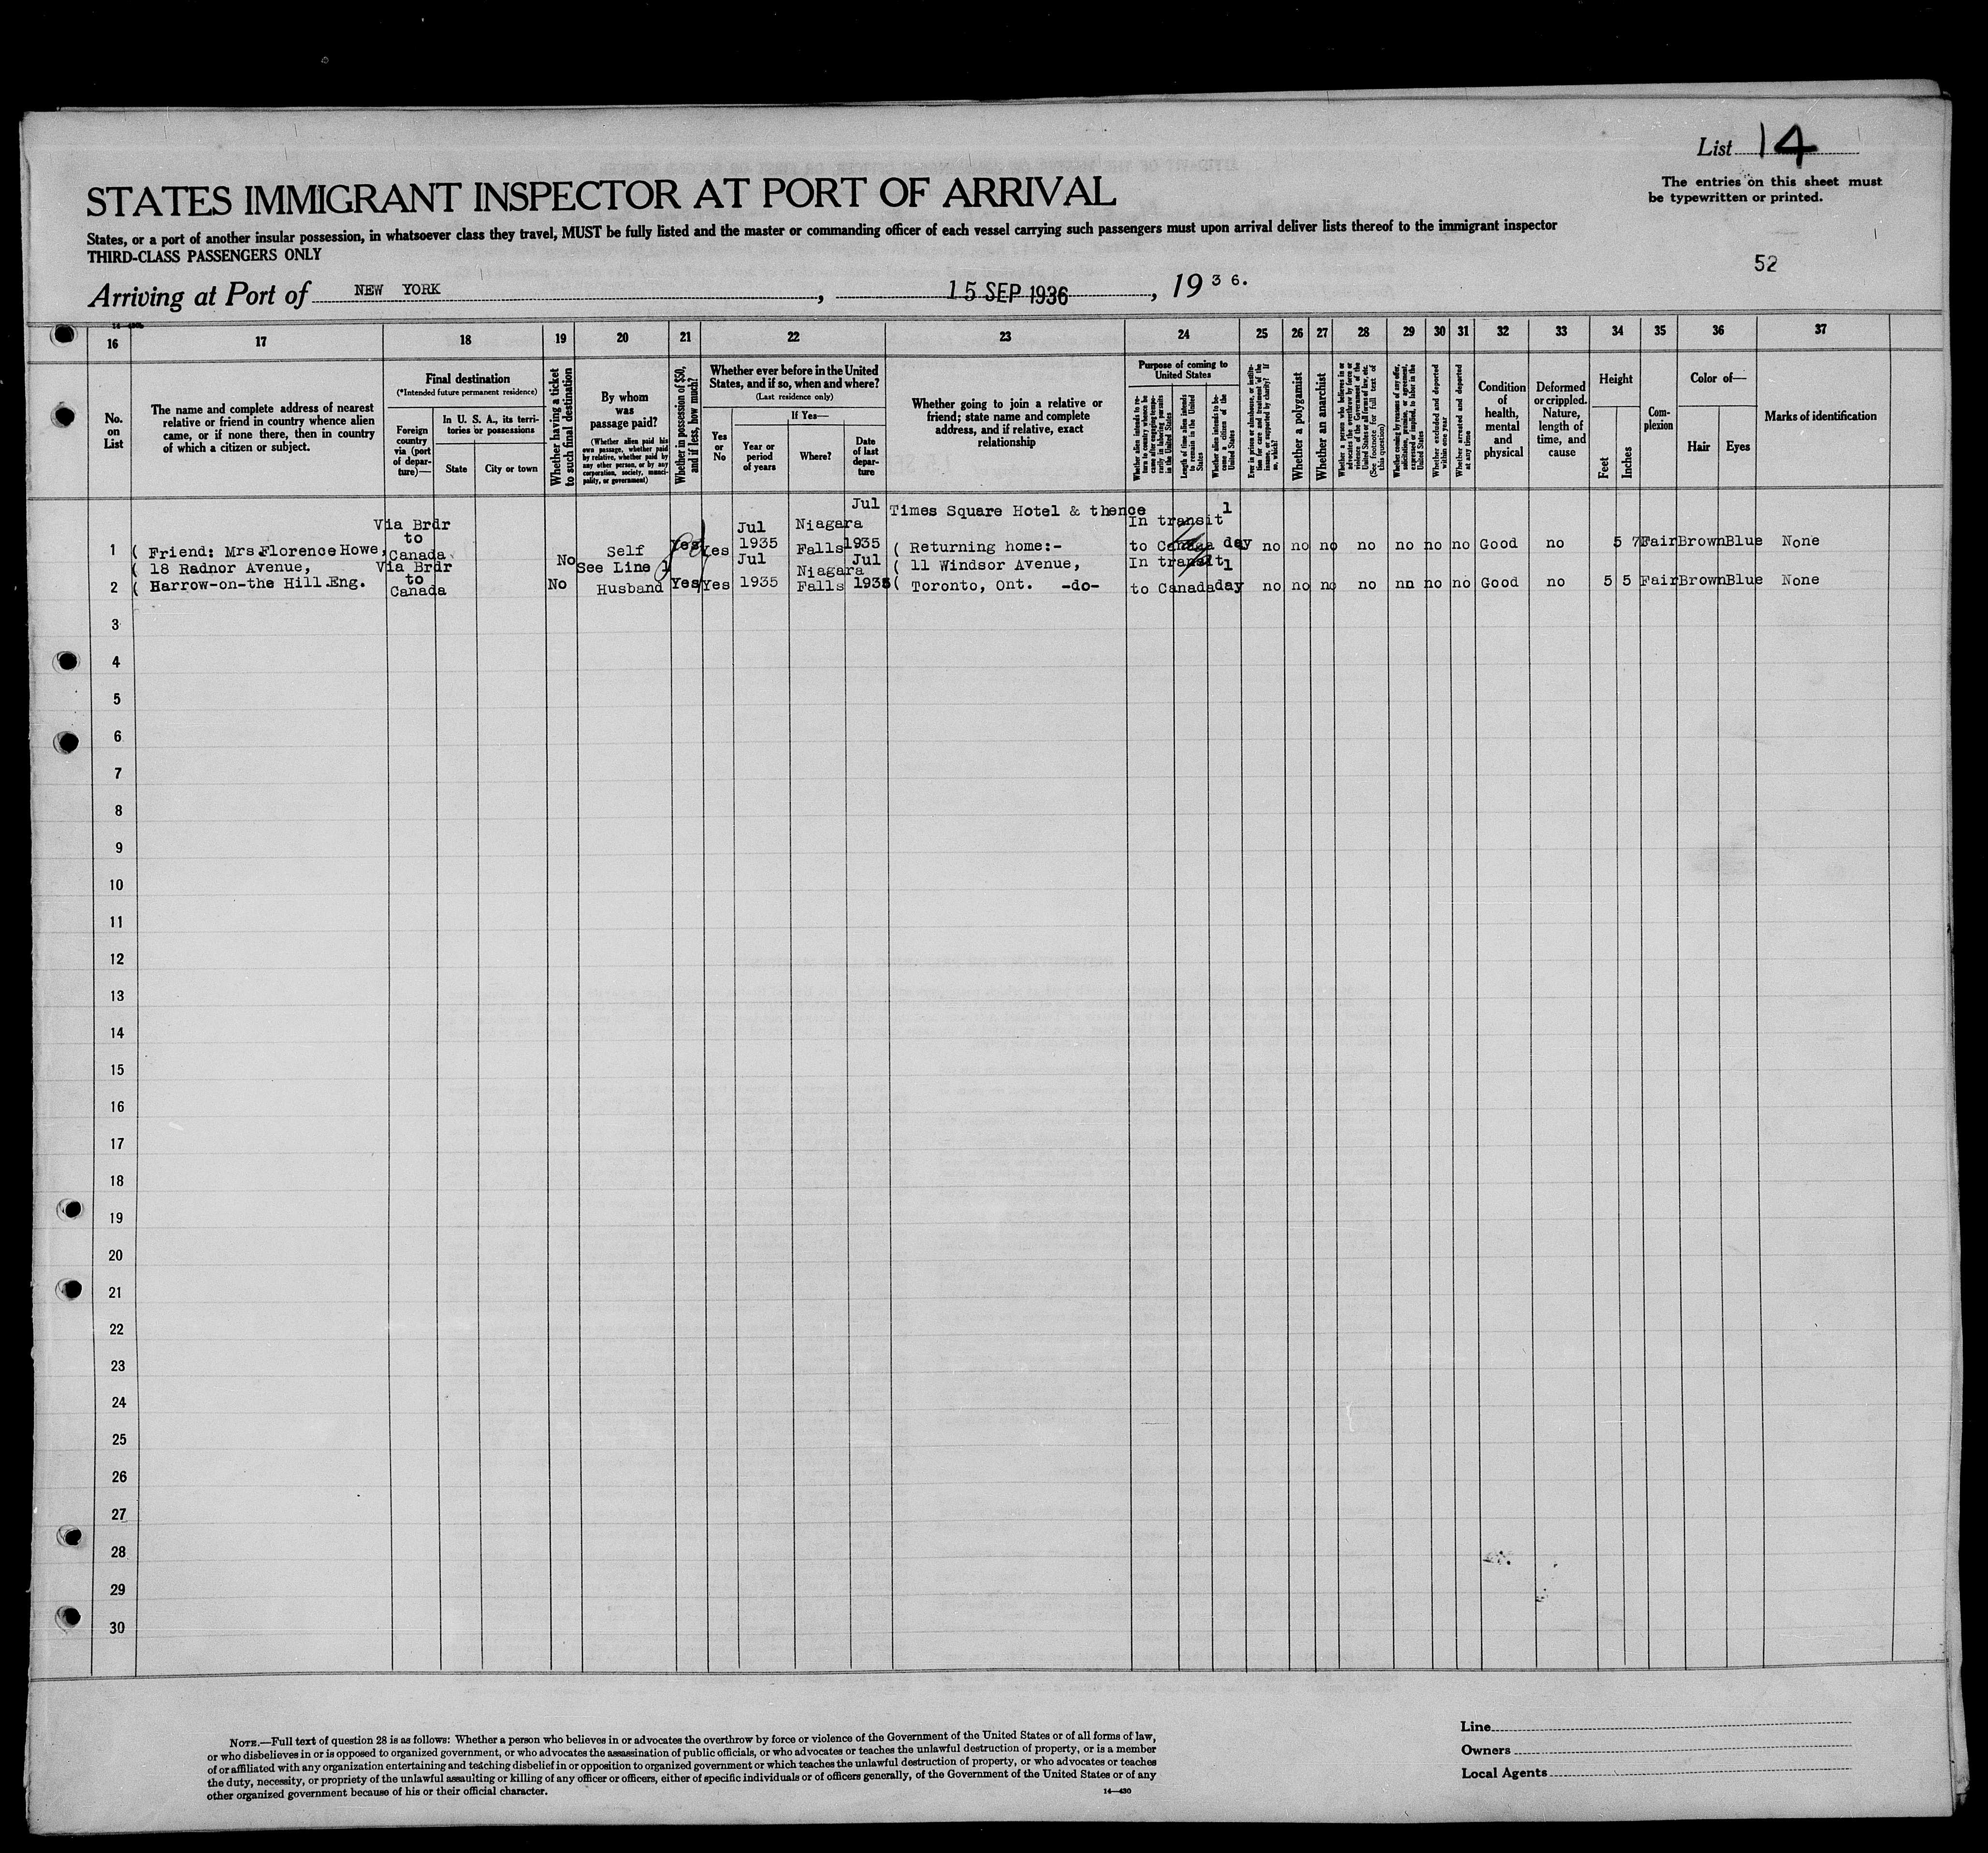 List 14
The entries on this sheet must
be typewritten or printed.
STATES IMMIGRANT INSPECTOR AT PORT OF ARRIVAL
States, or a port of another insular possession, in whatsoever class they travel, MUST be fully listed and the master or commanding officer of each vessel carrying such passengers must upon arrival deliver lists thereof to the immigrant inspector
THIRD-CLASS PASSENGERS ONLY
52
Arriving at Port of NEW YORK, 15 SEP 1936, 1936.
16 17 18 19 20 21 22 23 24 25 26 27 28 29 30 31 32 33 34 35 36 37
No.
on
List
The name and complete address of nearest
relative or friend in country whence alien
came, or if none there, then in country
of which a citizen or subject.
Final destination
(*Intended future permanent residence)
Foreign
country
via (port
of depar-
ture)—
In U. S. A., its terri-
tories or possessions
State
City or town
Whether having a ticket
to such final destination
By whom
was
passage paid?
(Whether alien paid his
own passage, whether paid
by relative, whether paid by
any other person, or by any
corporation, society, munici-
pality, or government)
Whether in possession of $50,
and if less, how much?
Whether ever before in the United
States, and if so, when and where?
(Last residence only)
Yes
or
No
If Yes—
Year or
period
of years
Where?
Date
of last
depar-
ture
Whether going to join a relative or
friend; state name and complete
address, and if relative, exact
relationship
Purpose of coming to
United States
Whether alien intends to re-
turn to country whence he
came after engaging tempo-
rarily in laboring pursuits
in the United States
Length of time alien intends
to remain in the United
States
Whether alien intends to be-
come a citizen of the
United States
Ever in prison or almshouse, or institu-
tion for care and treatment of the
insane, or supported by charity? If
so, which?
Whether a polygamist
Whether an anarchist
Whether a person who believes in or
advocates the overthrow by force or
violence of the Government of the
United States or all forms of law, etc.
(See footnote for full text of
this question)
Whether coming by reasons of any offer,
solicitation, promise, or agreement,
expressed or implied, to labor in the
United States
Whether excluded and deported
within one year
Whether arrested and deported
at any time
Condition
of
health,
mental
and
physical
Deformed
or crippled.
Nature,
length of
time, and
cause
Height
Feet
Inches
Com-
plexion
Color of—
Hair
Eyes
Marks of identification
Jul Times Square Hotel & thence 1
Via Brdr Jul Niagara In transit
to
1 ( Friend: Mrs Florence Howe, Canada No Self Yes Yes 1935 Falls 1935 ( Returning home:- to Canada day no no no no no no no Good no 5 7 Fair Brown Blue None
( 18 Radnor Avenue, Via Brdr See Line 1 Jul Niagara Jul ( 11 Windsor Avenue, In transit 1
2 ( Harrow-on-the Hill Eng. to Canada No Husband Yes Yes 1935 Falls 1935 ( Toronto, Ont. -do- to Canada day no no no no no no no Good no 5 5 Fair Brown Blue None
3
4
5
6
7
8
9
10
11
12
13
14
15
16
17
18
19
20
21
22
23
24
25
26
27
28
29
30
NOTE.—Full text of question 28 is as follows: Whether a person who believes in or advocates the overthrow by force or violence of the Government of the United States or of all forms of law,
or who disbelieves in or is opposed to organized government, or who advocates the assassination of public officials, or who advocates or teaches the unlawful destruction of property, or is a member
of or affiliated with any organization entertaining and teaching disbelief in or opposition to organized government or which teaches the unlawful destruction of property, or who advocates or teaches
the duty, necessity, or propriety of the unlawful assaulting or killing of any officer or officers, either of specific individuals or of officers generally, of the Government of the United States or of any
other organized government because of his or their official character.
14—430
Line
Owners
Local Agents